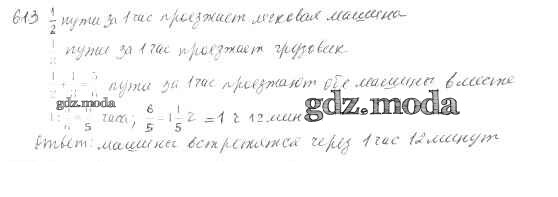 613 1/2 пути за 1 час проезжает легковая машина
1/3 пути за 1 час проезжает грузовик
1/2 + 1/3 = 5/6 пути за 1 час проезжают обе машины вместе
gdz.moda
gdz.moda
1 : 5/6 = 6/5 часа; 6/5 = 1 1/5 ч = 1 ч 12 мин
Ответ: машины встретятся через 1 час 12 минут